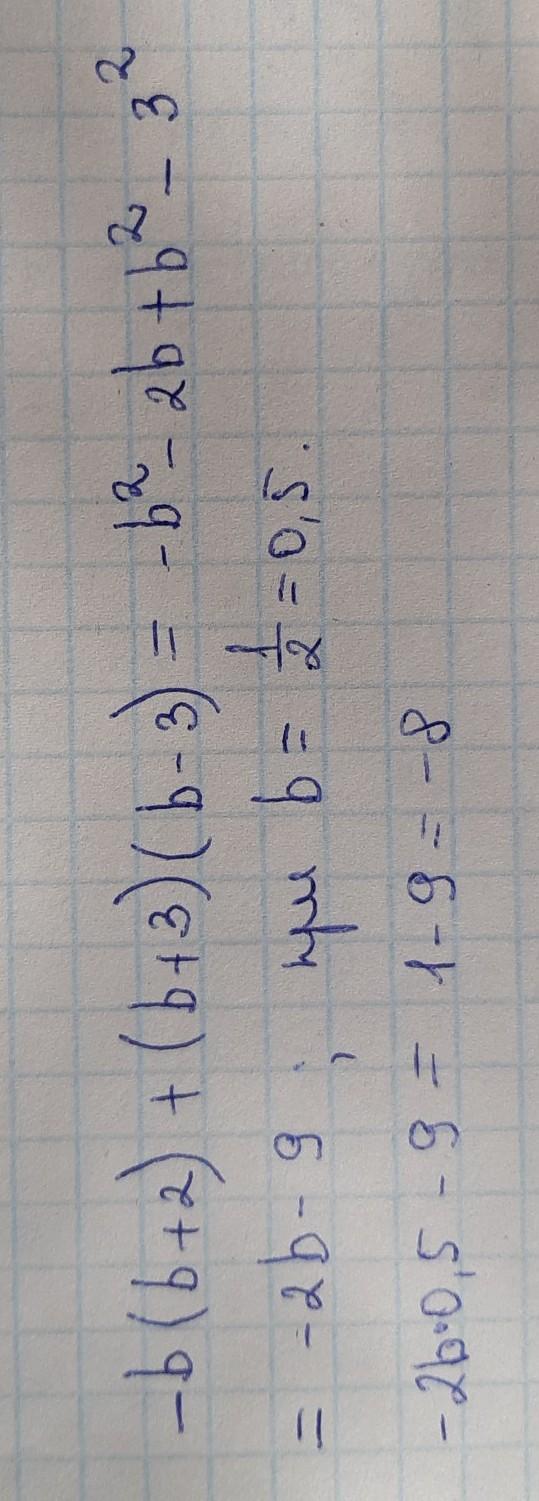 -b(b+2) + (b+3)(b-3) = -b² - 2b + b² - 3²
= -2b - 9 ; при b = 1/2 = 0,5.
-2b·0,5 - 9 = 1 - 9 = -8